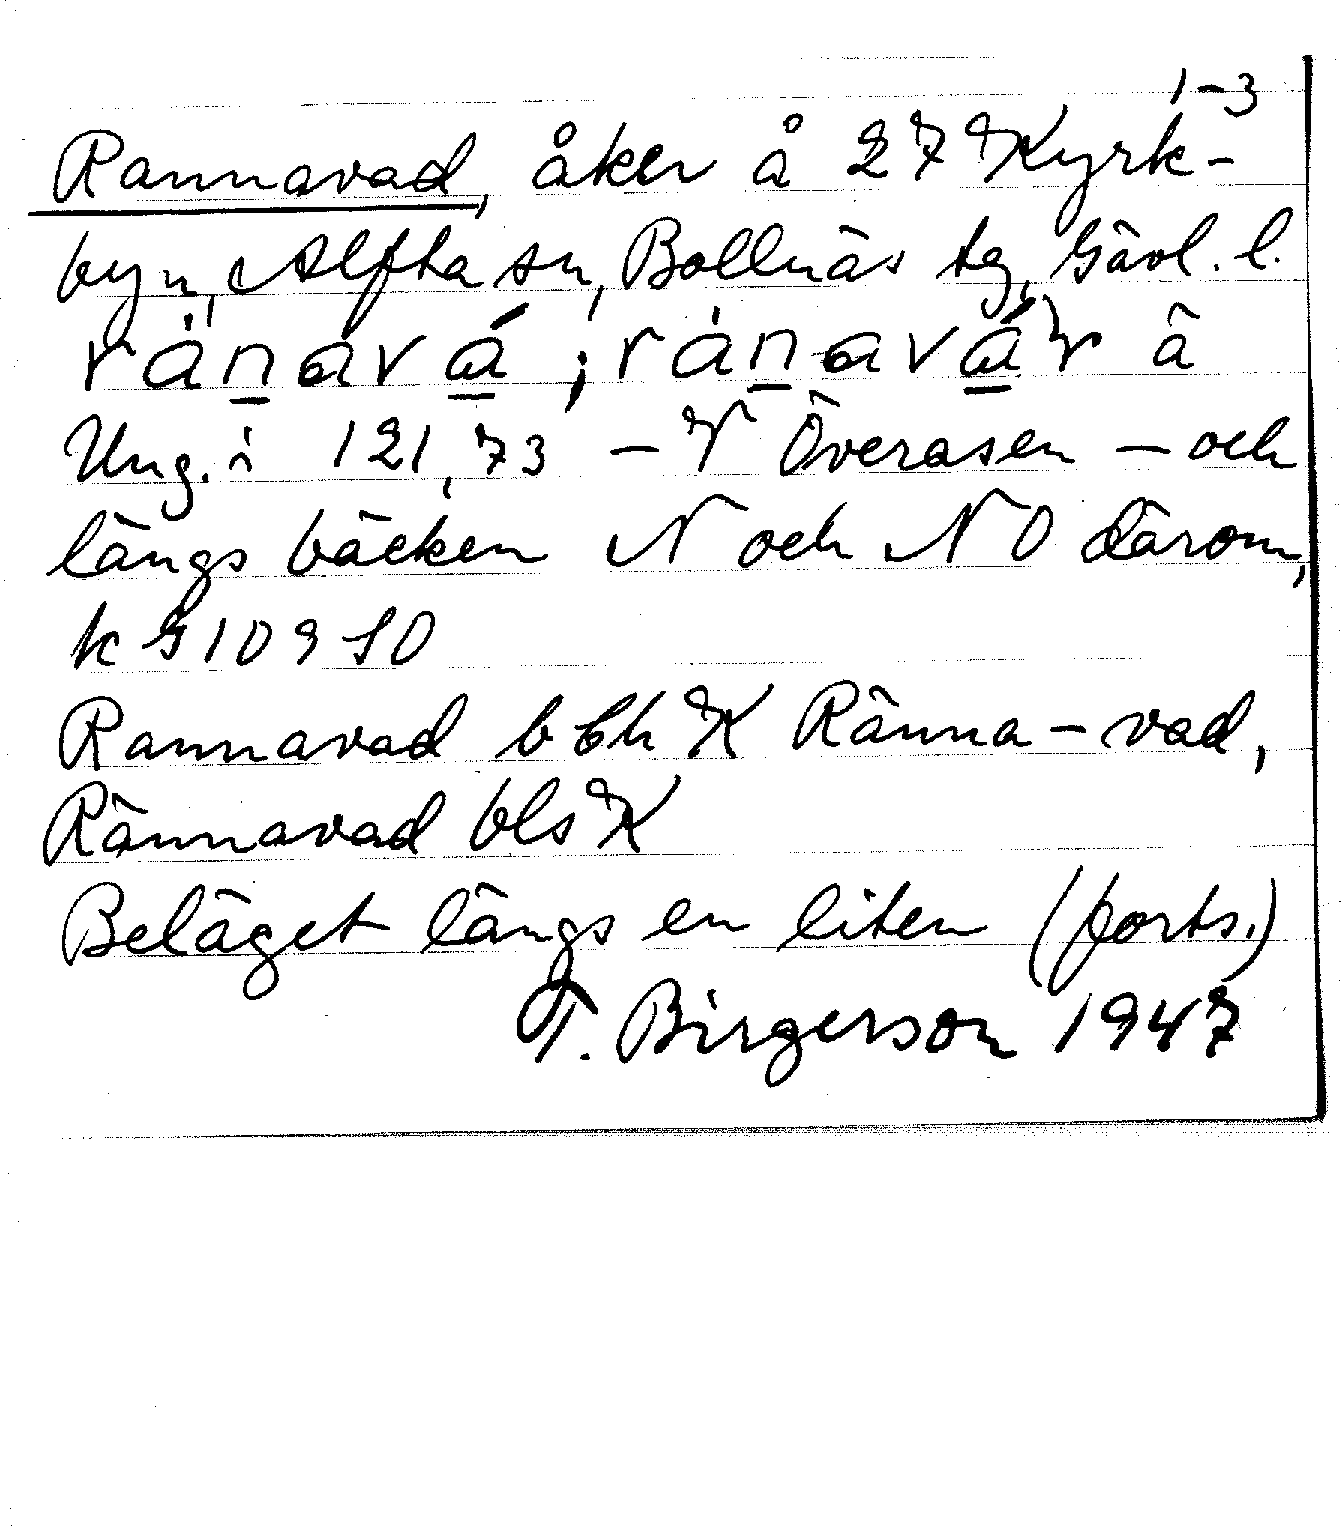 Rannavad, åker å 27 1-3 Kyrk-
byn, Alfta sn, Bollnäs tg, Gävl. l.
rànavá; rànavár ä
Ung. i 121,73 - V Överåsen - och
längs bäcken N och NO därom,
k G10910
Rannavad bbhK Ränna-vad,
Rännavad blsK
Beläget längs en liten (forts.)
T. Birgerson 1947